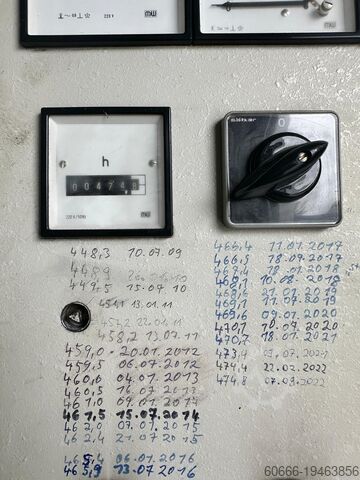 220 V
MW
MW
h
00474
220 V/50Hz
MW
0
448,3 10.07.09
4489
449,5 15.07 10
451,1 13.01.11
454,2 22.01.11
458,2 13.07.11
459,0 - 20.01.2012
459,5 06.07.2012
460,0 04.01.2013
460,5 16.07.2013
461,0 09.01.2014
461,5 15.07.2014
462,0 07.01.2015
462,4 21.07.2015
465,4 06.01.2016
465,9 13.07.2016
466,4 11.01.2017
466,5 18.07.2017
467,4 18.01.2018
468,1 10.08.2018
468,6 21.01.2019
469,1 11.07.2019
469,6 09.01.2020
470,1 10.09.2020
470,7 18.01.2021
473,4 09.07.2021
474,4 22.01.2022
474,8 07.09.2022
60666-19463856